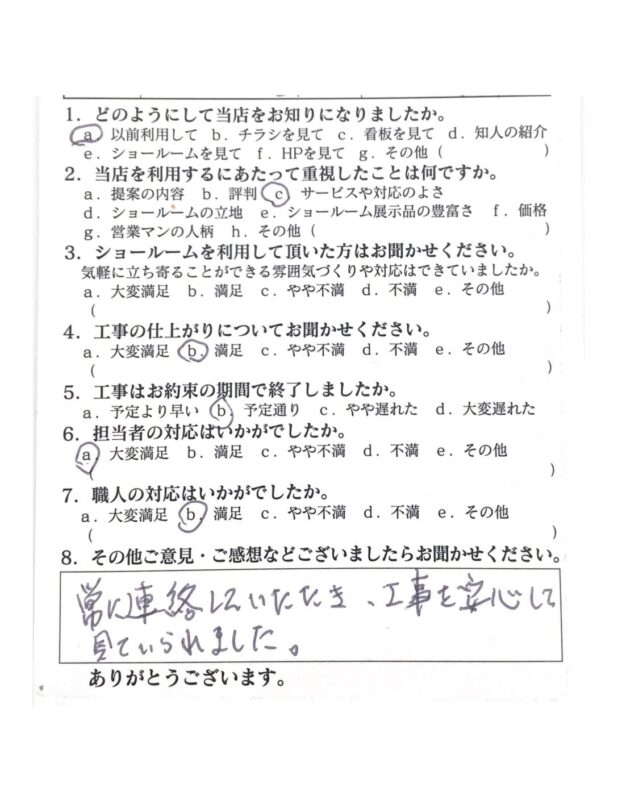 1．どのようにして当店をお知りになりましたか。
a 以前利用して b．チラシを見て c．看板を見て d．知人の紹介
e．ショールームを見て f．HPを見て g．その他（ ）
2．当店を利用するにあたって重視したことは何ですか。
a．提案の内容 b．評判 c サービスや対応のよさ
d．ショールームの立地 e．ショールーム展示品の豊富さ f．価格
g．営業マンの人柄 h．その他（ ）
3．ショールームを利用して頂いた方はお聞かせください。
気軽に立ち寄ることができる雰囲気づくりや対応はできていましたか。
a．大変満足 b．満足 c．やや不満 d．不満 e．その他
（ ）
4．工事の仕上がりについてお聞かせください。
a．大変満足 b．満足 c．やや不満 d．不満 e．その他
（ ）
5．工事はお約束の期間で終了しましたか。
a．予定より早い b 予定通り c．やや遅れた d．大変遅れた
6．担当者の対応はいかがでしたか。
a 大変満足 b．満足 c．やや不満 d．不満 e．その他
（ ）
7．職人の対応はいかがでしたか。
a．大変満足 b．満足 c．やや不満 d．不満 e．その他
（ ）
8．その他ご意見・ご感想などございましたらお聞かせください。
常に連絡していただき、工事を安心して
見ていられました。
ありがとうございます。